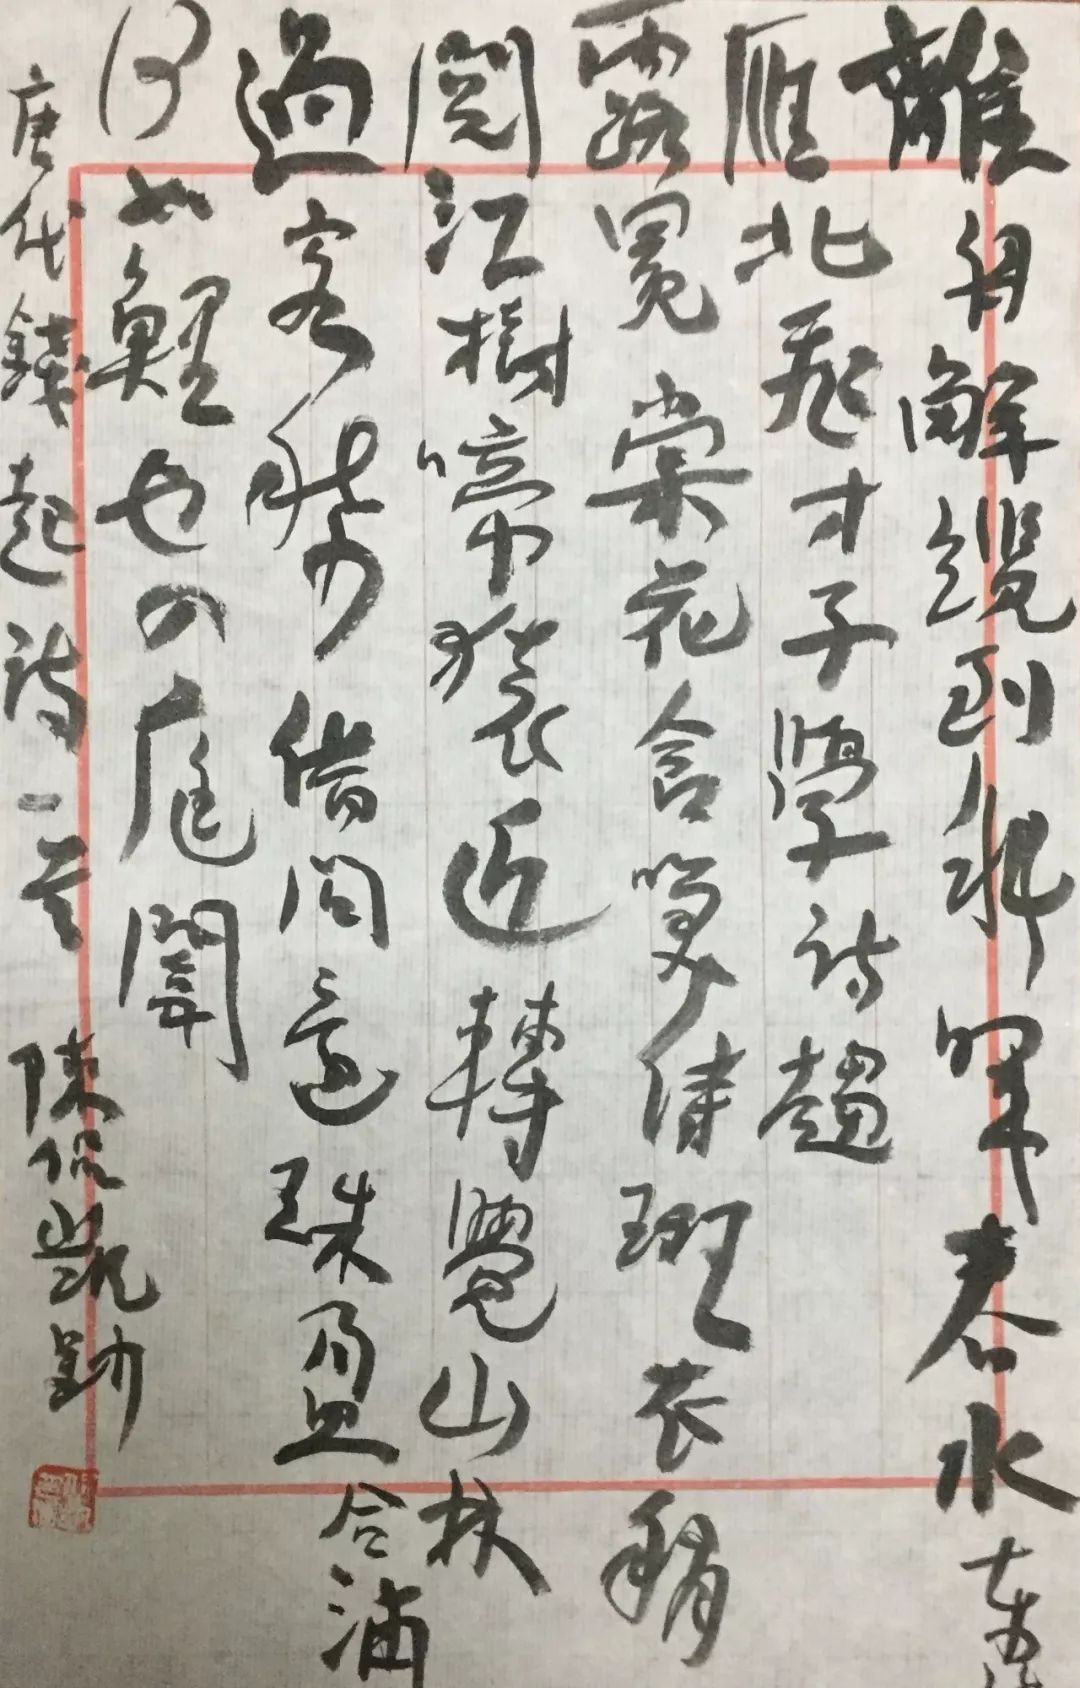 離舟解纜到斜暉春水東流
雁北飛才子學詩趨
露冕棠花含笑待斑衣稍
聞江樹啼猿近轉覺山林
過客稀借問還珠盈合浦
何如鯉也入庭闈
唐代錢起詩一首 陳侃凱鈔